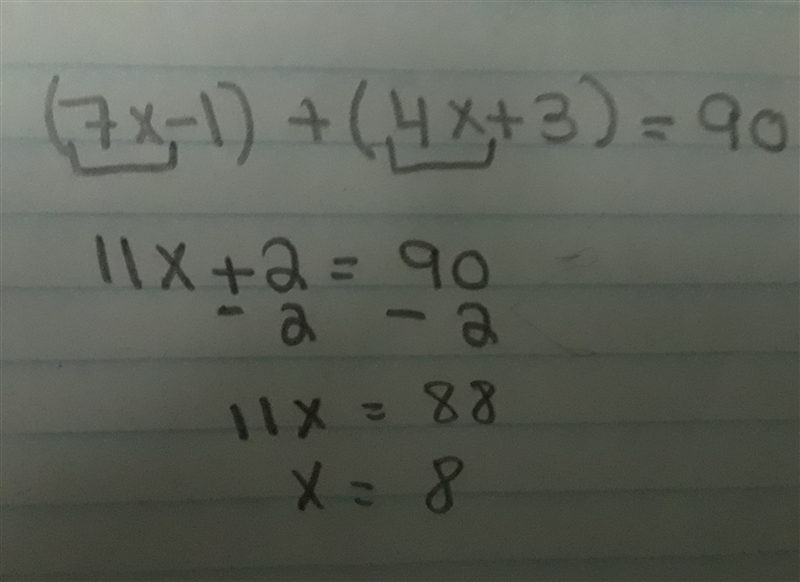 (7x-1) + (4x+3) = 90
11x + 2 = 90
- 2 - 2
11x = 88
x = 8